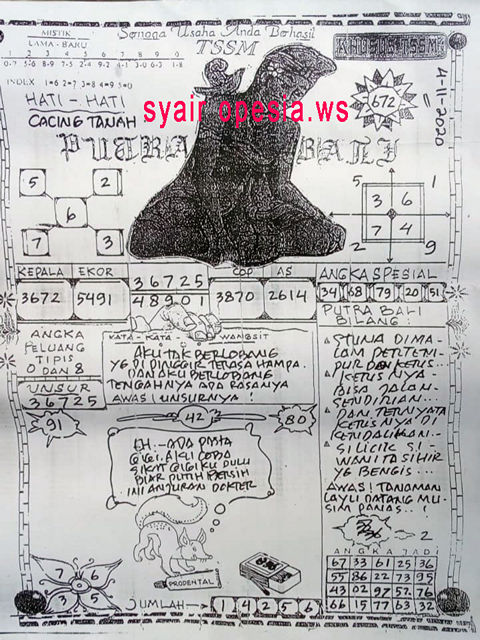 MISTIK
LAMA - BARU
1 2 3 4 5 6 7 8 9 0
Semoga Usaha Anda Berhasil
TSSM
KHUSUS TSSM
INDEX 1=6 2=7 3=8 4=9 5=0
HATI - HATI
CACING TANAH
syair opesia.ws
672
4-11-2020
PUTRA BALI
5 2
6
7 3
5 1
3 6
7 4
2 9
KEPALA EKOR
3672 5491
36725
48901
COP AS
3870 2614
ANGKA SPESIAL
34 68 79 20 51
PUTRA BALI
BILANG:
ANGKA
PELUANG
TIPIS
0 DAN 8
UNSUR
36725
KATA - KATA - WANGSIT
AKU TAK BERLOBANG
YG DI PINGGIR TERASA HAMPA.
DIANGKU BERLOBANG
TENGAHNYA ADA RASANYA
AWAS! UNSURNYA!
91
42
80
EH.-ADA PASTA
GIGI. AKU COBA
SIKAT GIGIKU DULU
BIAR PUTIH BERSIH
INI ANJURAN DOKTER
BISA JALAN
SENDIRIAN...
DAN TERNYATA
KERISNYA DI
KENDALIKAN...
SI LICIK SI
WANITA SIHIR
YG BENGIS...
AWAS! TANAMAN
LAYU DATANG MU-
SIM PANAS..!
2
PRODENTAL
7 6
3 5
JUMLAH 1 4 2 5 6
ANGKA JADI
67 33 61 25 36
55 86 22 73 95
43 02 97 52 76
66 15 77 63 32